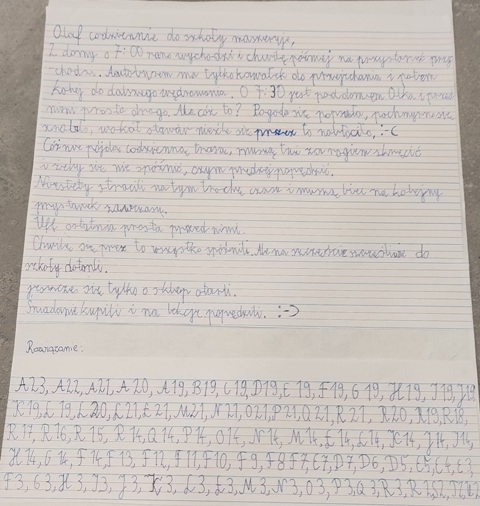 Olaf codziennie do szkoły maszeruje,
Z domu o 7:00 rano wychodzi i chwilę później na przystanek prze
chodzi. Autobusem ma tylko kawałek do przejechania i potem
kolej do dalszego wędrowania. O 7:30 jest pod domem Olka i przed
nimi prosta droga. Ale cóż to? Pogoda się popsuła, pochmurn się
zrobiło, wokół stawów może się przez to nabłociło, :-(
Cóż nie pójdą codzienną trasą, muszą tuż za rogiem skręcić
i żeby się nie spóźnić, czym prędzej popędzić.
Niestety stracili na tym trochę czasu i muszą biec na kolejny
przystanek
Uff ostatnia prosta przed nimi.
Chwilę się przez to wszystko spóźnili. Ale na szczęście do
szkoły dotarli.
Jeszcze się tylko o sklep otarli.
Śniadanie kupili i na lekcje popędzili. :-)
Rozwiązanie:
A23, A22, A21, A20, A19, B19, C19, D19, E19, F19, G19, H19, I19, J19
K19, L19, L20, L21, Ł21, M21, N21, O21, P21, Q21, R21, R20, R19, R18,
R17, R16, R15, R14, Q14, P14, O14, N14, M14, Ł14, L14, K14, J14, I14,
H14, G14, F14, F13, F12, F11, F10, F9, F8, F7, E7, D7, D6, D5, E5, E4, E3,
F3, G3, H3, I3, J3, K3, L3, Ł3, M3, N3, O3, P3, Q3, R3, R2